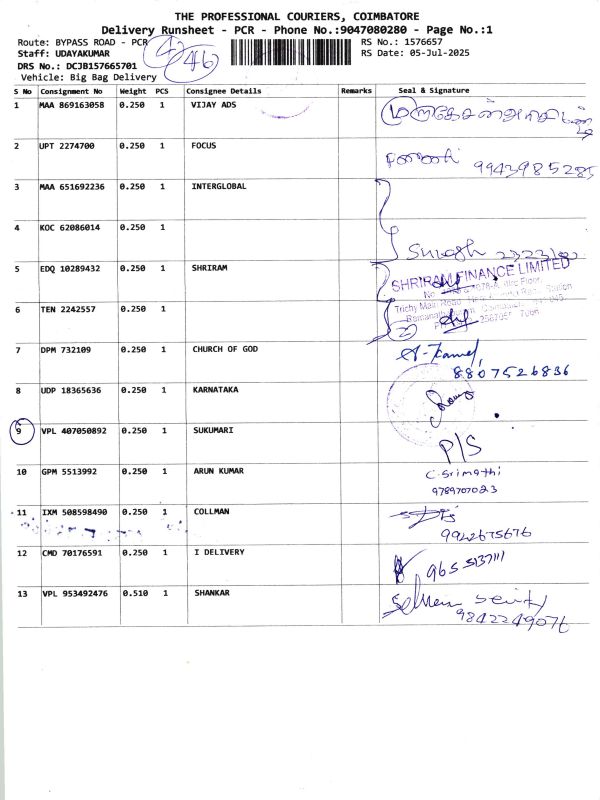 THE PROFESSIONAL COURIERS, COIMBATORE
Delivery Runsheet - PCR - Phone No.:9047080280 - Page No.:1
Route: BYPASS ROAD - PCR
RS No.: 1576657
Staff: UDAYAKUMAR
46
RS Date: 05-Jul-2025
DRS No.: DCJB157665701
Vehicle: Big Bag Delivery
S No Consignment No Weight PCS Consignee Details Remarks Seal & Signature
1 MAA 869163058 0.250 1 VIJAY ADS
2 UPT 2274700 0.250 1 FOCUS
9943985285
3 MAA 651692236 0.250 1 INTERGLOBAL
4 KOC 62086014 0.250 1
Suresh
5 EDQ 10289432 0.250 1 SHRIRAM SHRIRAM FINANCE LIMITED
Trichy Main Road
6 TEN 2242557 0.250 1
2
7 DPM 732109 0.250 1 CHURCH OF GOD
8807526836
8 UDP 18365636 0.250 1 KARNATAKA
9 VPL 407050892 0.250 1 SUKUMARI P/S
10 GPM 5513992 0.250 1 ARUN KUMAR C. Srimathi
9789707023
11 IXM 508598490 0.250 1 COLLMAN
9922675676
12 CMD 70176591 0.250 1 I DELIVERY 9655137111
13 VPL 953492476 0.510 1 SHANKAR
9842249076